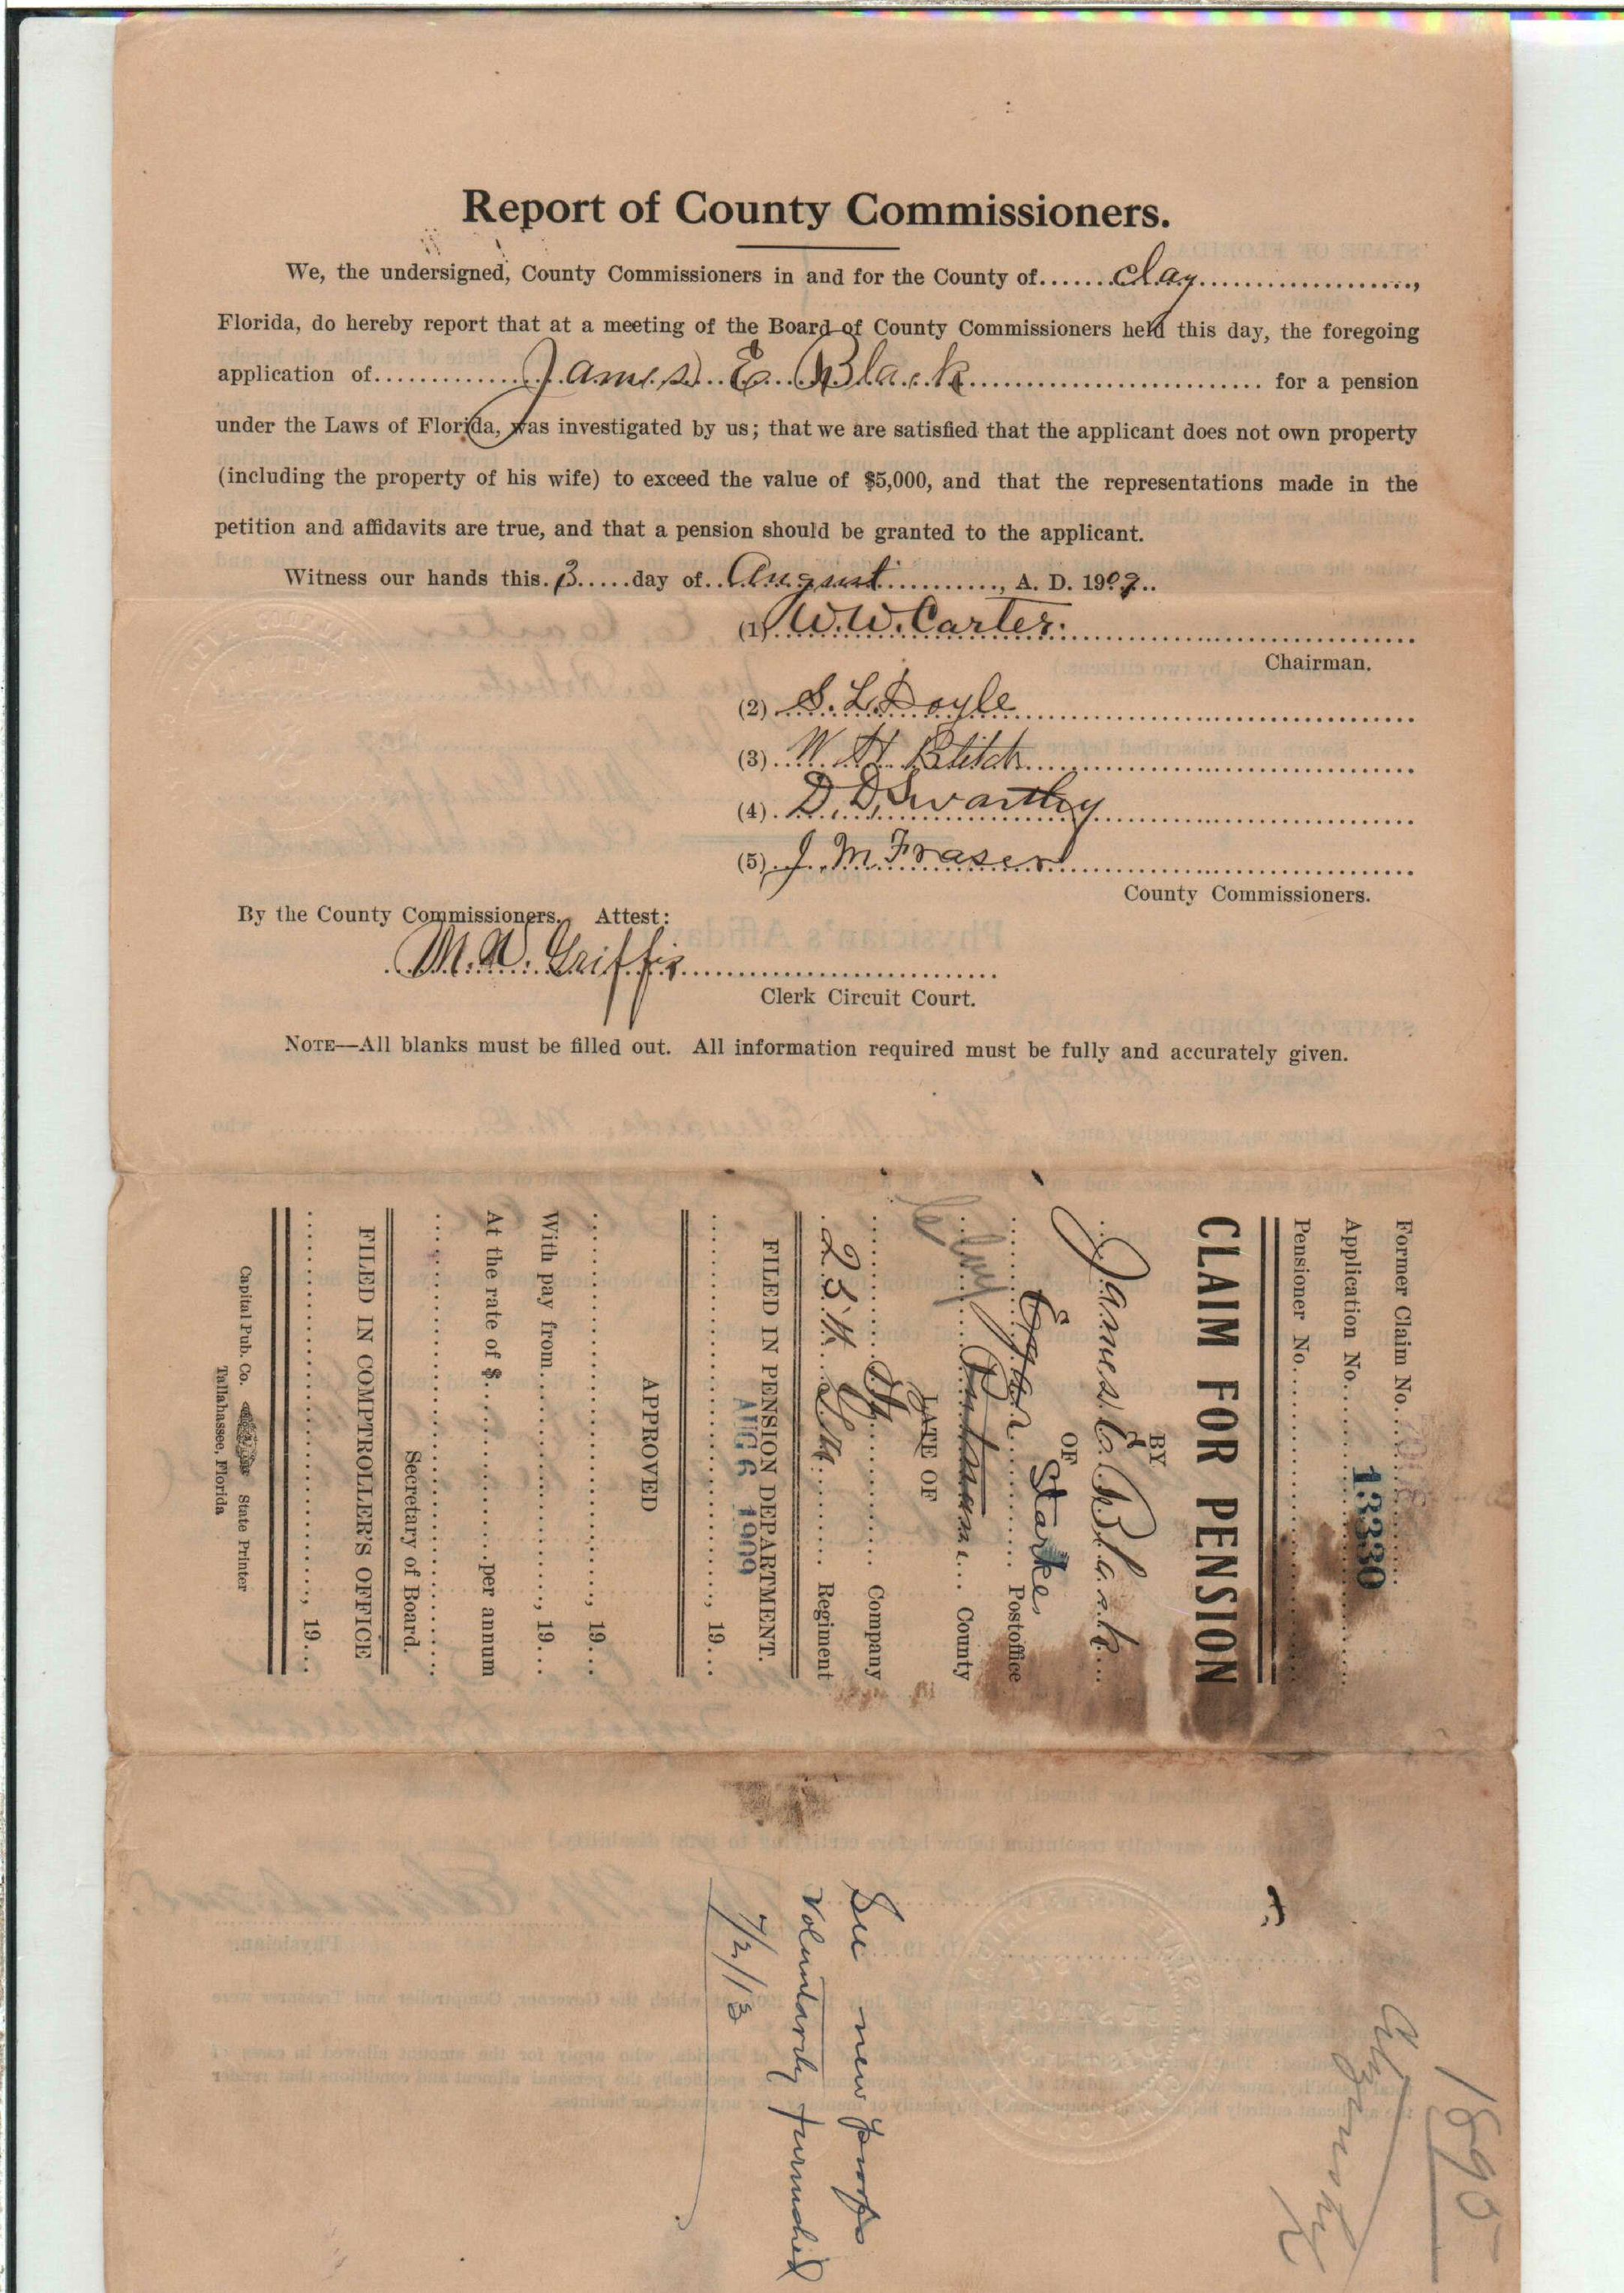 Report of County Commissioners.
We, the undersigned, County Commissioners in and for the County of Clay,
Florida, do hereby report that at a meeting of the Board of County Commissioners held this day, the foregoing
application of James E. Black for a pension
under the Laws of Florida, was investigated by us; that we are satisfied that the applicant does not own property
(including the property of his wife) to exceed the value of $5,000, and that the representations made in the
petition and affidavits are true, and that a pension should be granted to the applicant.
Witness our hands this 3 day of August, A. D. 1909.
(1) W. W. Carter.
Chairman.
(2) S. L. Doyle
(3) W. H. Blitch
(4) D. D. Swarthy
(5) J. M. Fraser
County Commissioners.
By the County Commissioners. Attest:
M. W. Griffis
Clerk Circuit Court.
NOTE—All blanks must be filled out. All information required must be fully and accurately given.
Former Claim No.
Application No. 13330
Pensioner No.
CLAIM FOR PENSION
BY
James E. Black
OF
Starke,
Postoffice
Clay Putnam County
LATE OF
Company
25th Regiment
FILED IN PENSION DEPARTMENT.
AUG 6 1909
, 19
APPROVED
, 19
With pay from , 19
At the rate of $ per annum
Secretary of Board.
FILED IN COMPTROLLER'S OFFICE
, 19
Capital Pub. Co. State Printer
Tallahassee, Florida
1895
See new proofs
voluntarily furnished
7/2/13